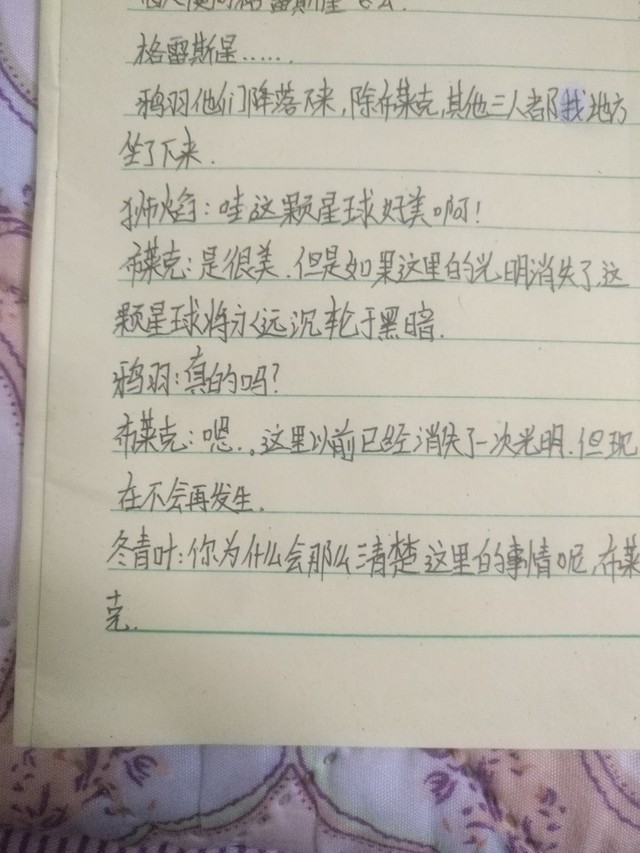 格雷斯星……
鸦羽他们降落下来,除布莱克,其他三人都找地方
坐了下来.
狮焰:哇这颗星球好美啊!
布莱克:是很美.但是如果这里的光明消失了,这
颗星球将永远沉轮于黑暗.
鸦羽:真的吗?
布莱克:嗯..这里以前已经消失了一次光明.但现
在不会再发生.
冬青叶:你为什么会那么清楚这里的事情呢,布莱
克.